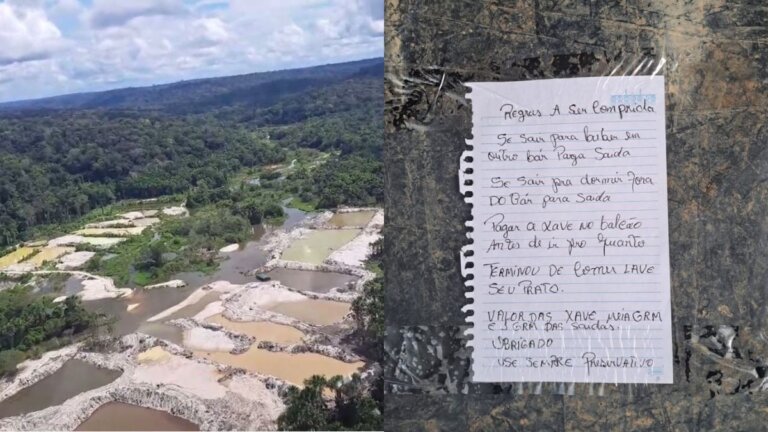 Regras A Ser Comprida
Se sair para beber em
outro bár Parga Saida
Se sair pra dormir fora
DO Bár para Saida
Pagar a xave no balcão
Antes de ir pro Quanto
TERMINOU DE Comer LAVE
SEU PRATO.
VALOR DAS XAVE MEIA GRM
E 1 GRM DAS Saidas.
OBRIGADO
USE SEMPRE PRESERVATIVO